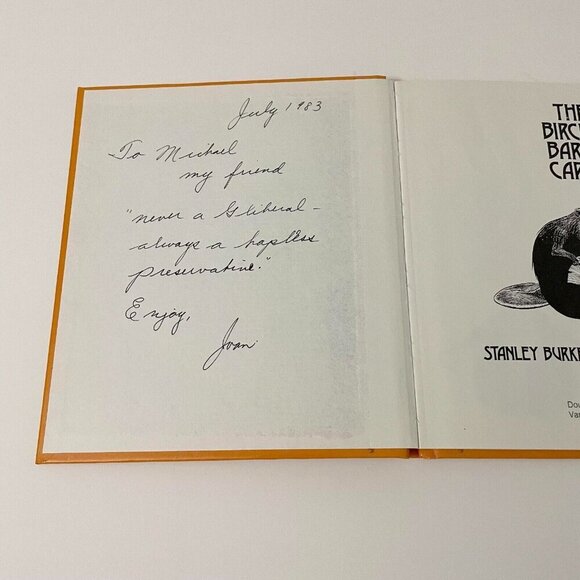 July 1983
To Michael
my friend
"never a Gliberal -
always a hapless
preservative."
Enjoy,
Joan
THE
BIRC
BAR
CAP
STANLEY BURKE
Dou
Van